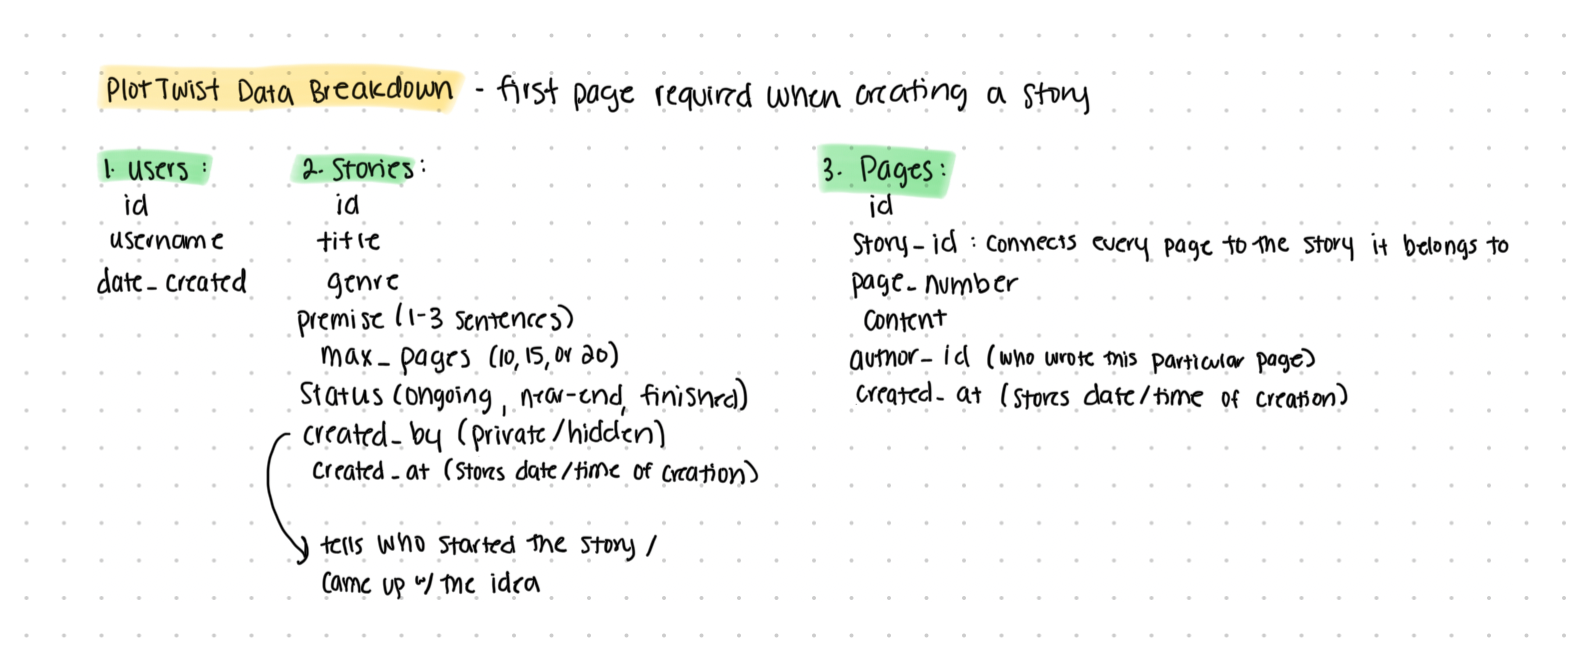 PlotTwist Data Breakdown - first page required when creating a story
1. Users:
id
username
date_created
2. Stories:
id
title
genre
premise (1-3 sentences)
max_pages (10, 15, or 20)
Status (ongoing, near-end, finished)
created_by (private/hidden)
created_at (stores date/time of creation)
tells who started the story /
came up w/ the idea
3. Pages:
id
Story_id : connects every page to the story it belongs to
page_number
content
author_id (who wrote this particular page)
created_at (stores date/time of creation)